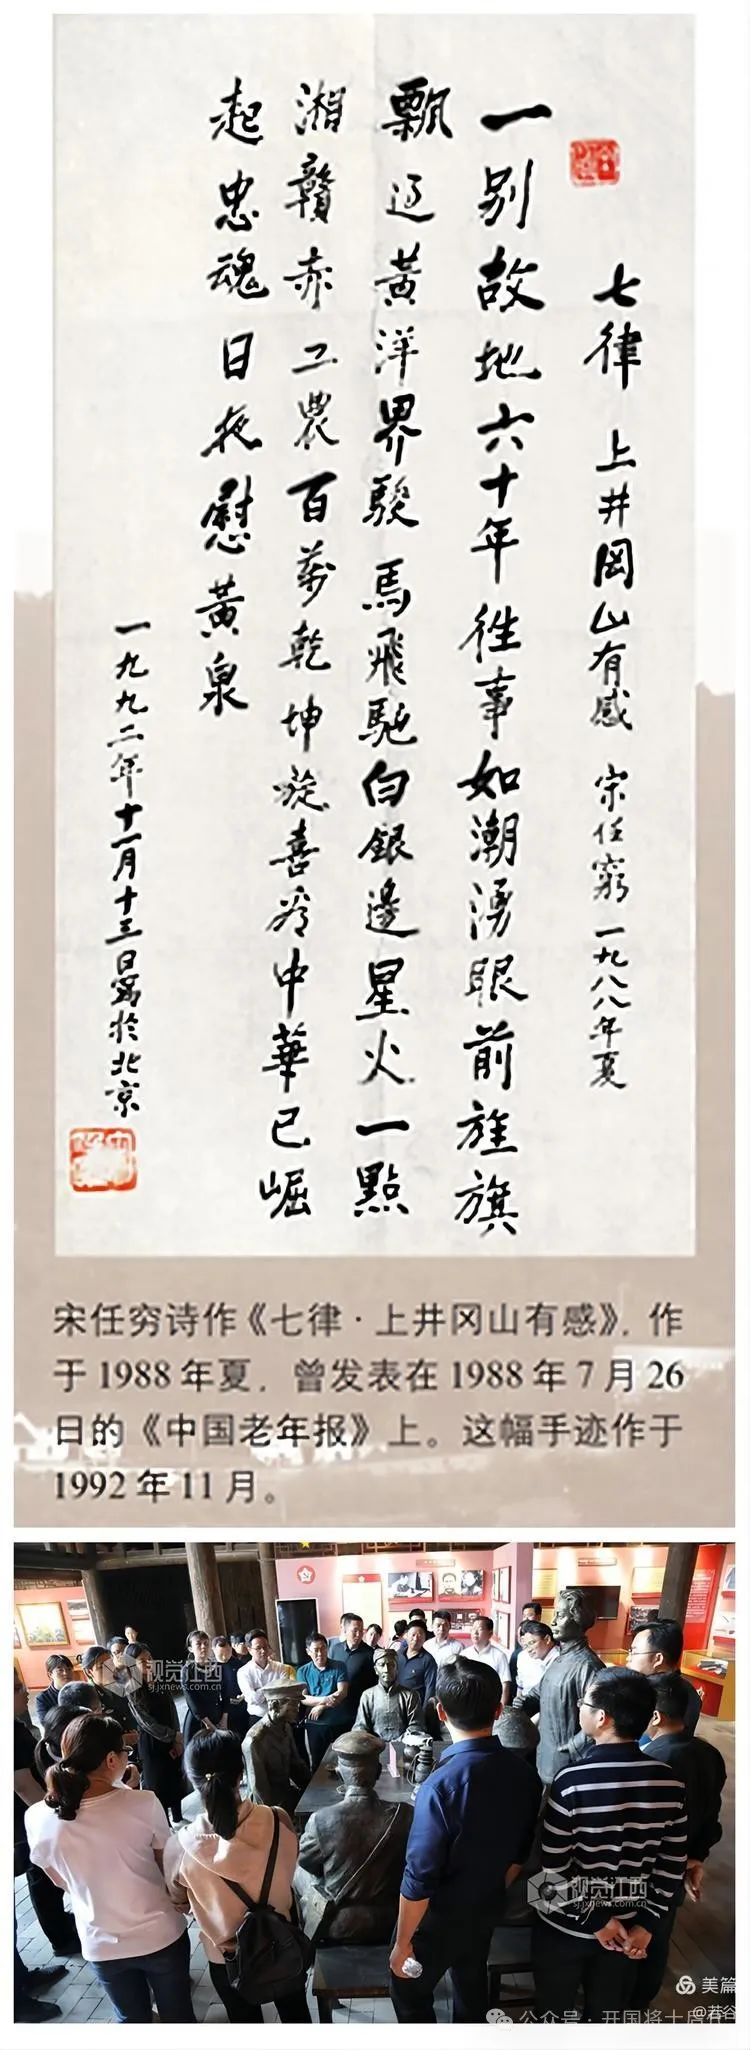 七律　上井冈山有感　宋任窮　一九八八年夏
一别故地六十年往事如潮湧眼前旌旗
飘过黄洋界駿馬飛馳白銀邊星火一點
湘贛赤工農百萬乾坤旋喜看中華已崛
起忠魂日夜慰黄泉
一九九二年十一月十三日寫於北京
宋任穷诗作《七律·上井冈山有感》，作
于1988年夏，曾发表在1988年7月26
日的《中国老年报》上。这幅手迹作于
1992年11月。
视觉江西
sj.jxnews.com.cn
视觉江西
sj.jxnews.com.cn
美篇
@若谷
公众号·开国将士后代